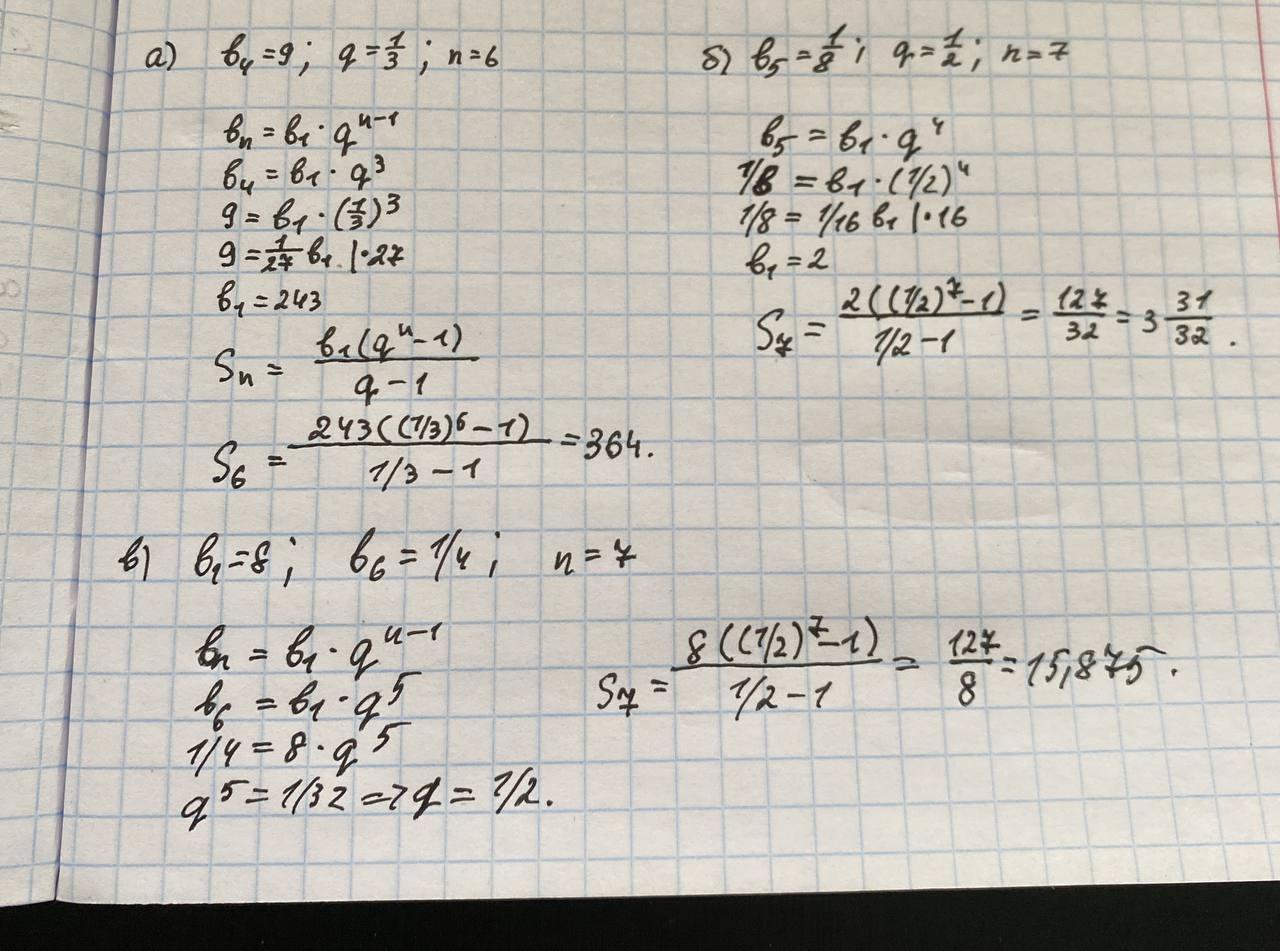 а) b₄ = 9; q = 1/3; n = 6
bₙ = b₁ · qⁿ⁻¹
b₄ = b₁ · q³
9 = b₁ · (1/3)³
9 = 1/27 b₁ | · 27
b₁ = 243
Sₙ = b₁(qⁿ − 1) / q − 1
S₆ = 243((1/3)⁶ − 1) / 1/3 − 1 = 364.
б) b₅ = 1/8; q = 1/2; n = 7
b₅ = b₁ · q⁴
1/8 = b₁ · (1/2)⁴
1/8 = 1/16 b₁ | · 16
b₁ = 2
S₇ = 2((1/2)⁷ − 1) / 1/2 − 1 = 127/32 = 3 31/32.
в) b₁ = 8; b₆ = 1/4; n = 7
bₙ = b₁ · qⁿ⁻¹
b₆ = b₁ · q⁵
1/4 = 8 · q⁵
q⁵ = 1/32 => q = 1/2.
S₇ = 8((1/2)⁷ − 1) / 1/2 − 1 = 127/8 = 15,875.